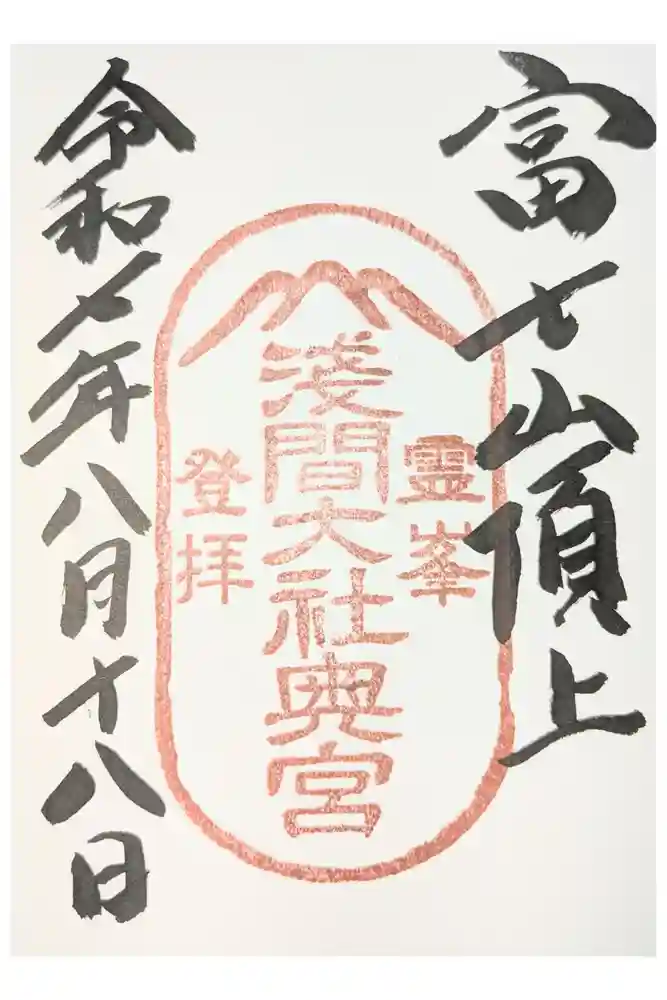 富士山頂上
霊峯
淺間大社奥宮
登拝
令和七年八月十八日